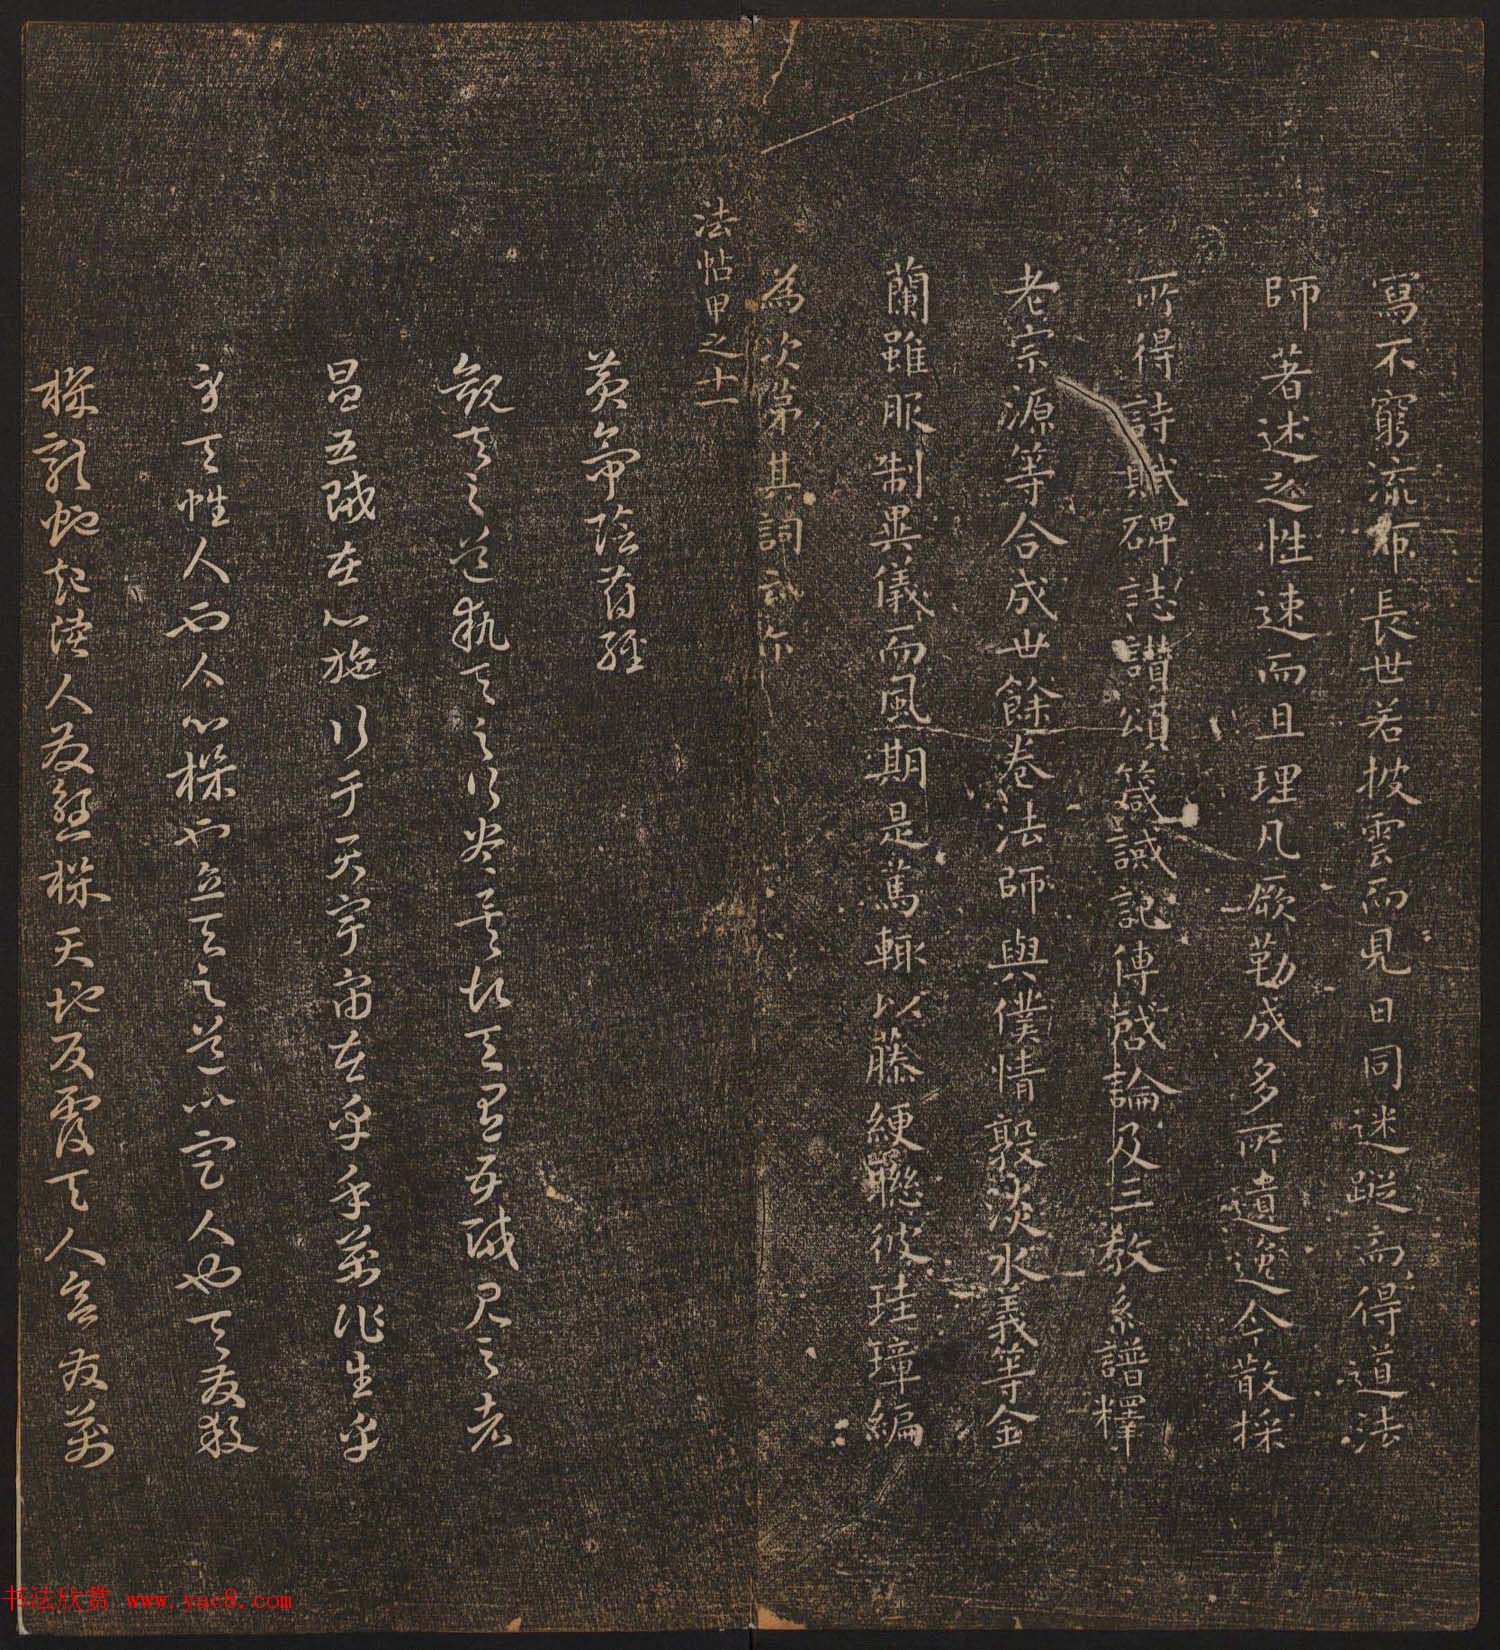 寫不窮流布長世若披雲而見日同迷蹤而得道法
師著述之性速而且理凡厥勒成多所遺逸今散採
所得詩賦碑誌讃頌箴誡記傳啓論及三教系譜釋
老宗源等合成廿餘卷法師與僕情敦淡水義等金
蘭雖服制異儀而風期是篤輒以藤綆聯彼珪璋編
為次第其詞云尔
法帖甲之十一
黄帝陰符經
觀天之道執天之行盡矣故天有五賊見之者
昌五賊在心施行于天宇宙在乎手萬化生乎
身天性人也人心機也立天之道以定人也天發殺
機龍蛇起陸人發殺機天地反覆天人合發萬
书法欣赏 www.yac8.com